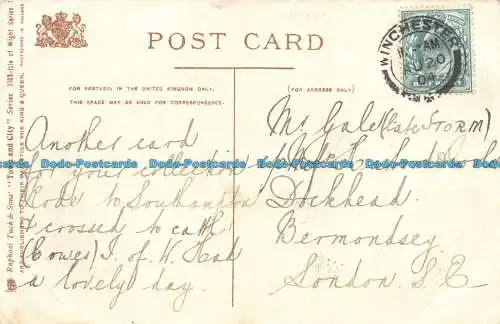 POST CARD
FOR POSTAGE IN THE UNITED KINGDOM ONLY.
THIS SPACE MAY BE USED FOR CORRESPONDENCE.
(FOR ADDRESS ONLY.)
Raphael Tuck & Sons' "Town and City" Series Isle of Wight Series
ART PUBLISHERS TO THEIR MAJESTIES THE KING & QUEEN.
WINCHESTER
AM
20
04
Another card
for your collection
Rode to Southampton
& crossed to
(Cowes) I. of W. Had
a lovely day.
Mr Gale (late STORM)
Dockhead.
Bermondsey
London. S.E
Dodo-Postcards Dodo-Postcards Dodo-Postcards Dodo-Postcards Dodo-Postcards